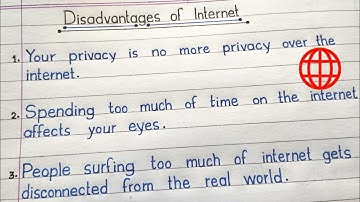 Disadvantages of Internet
1. Your privacy is no more privacy over the
internet.
2. Spending too much of time on the internet
affects your eyes.
3. People surfing too much of internet gets
disconnected from the real world.